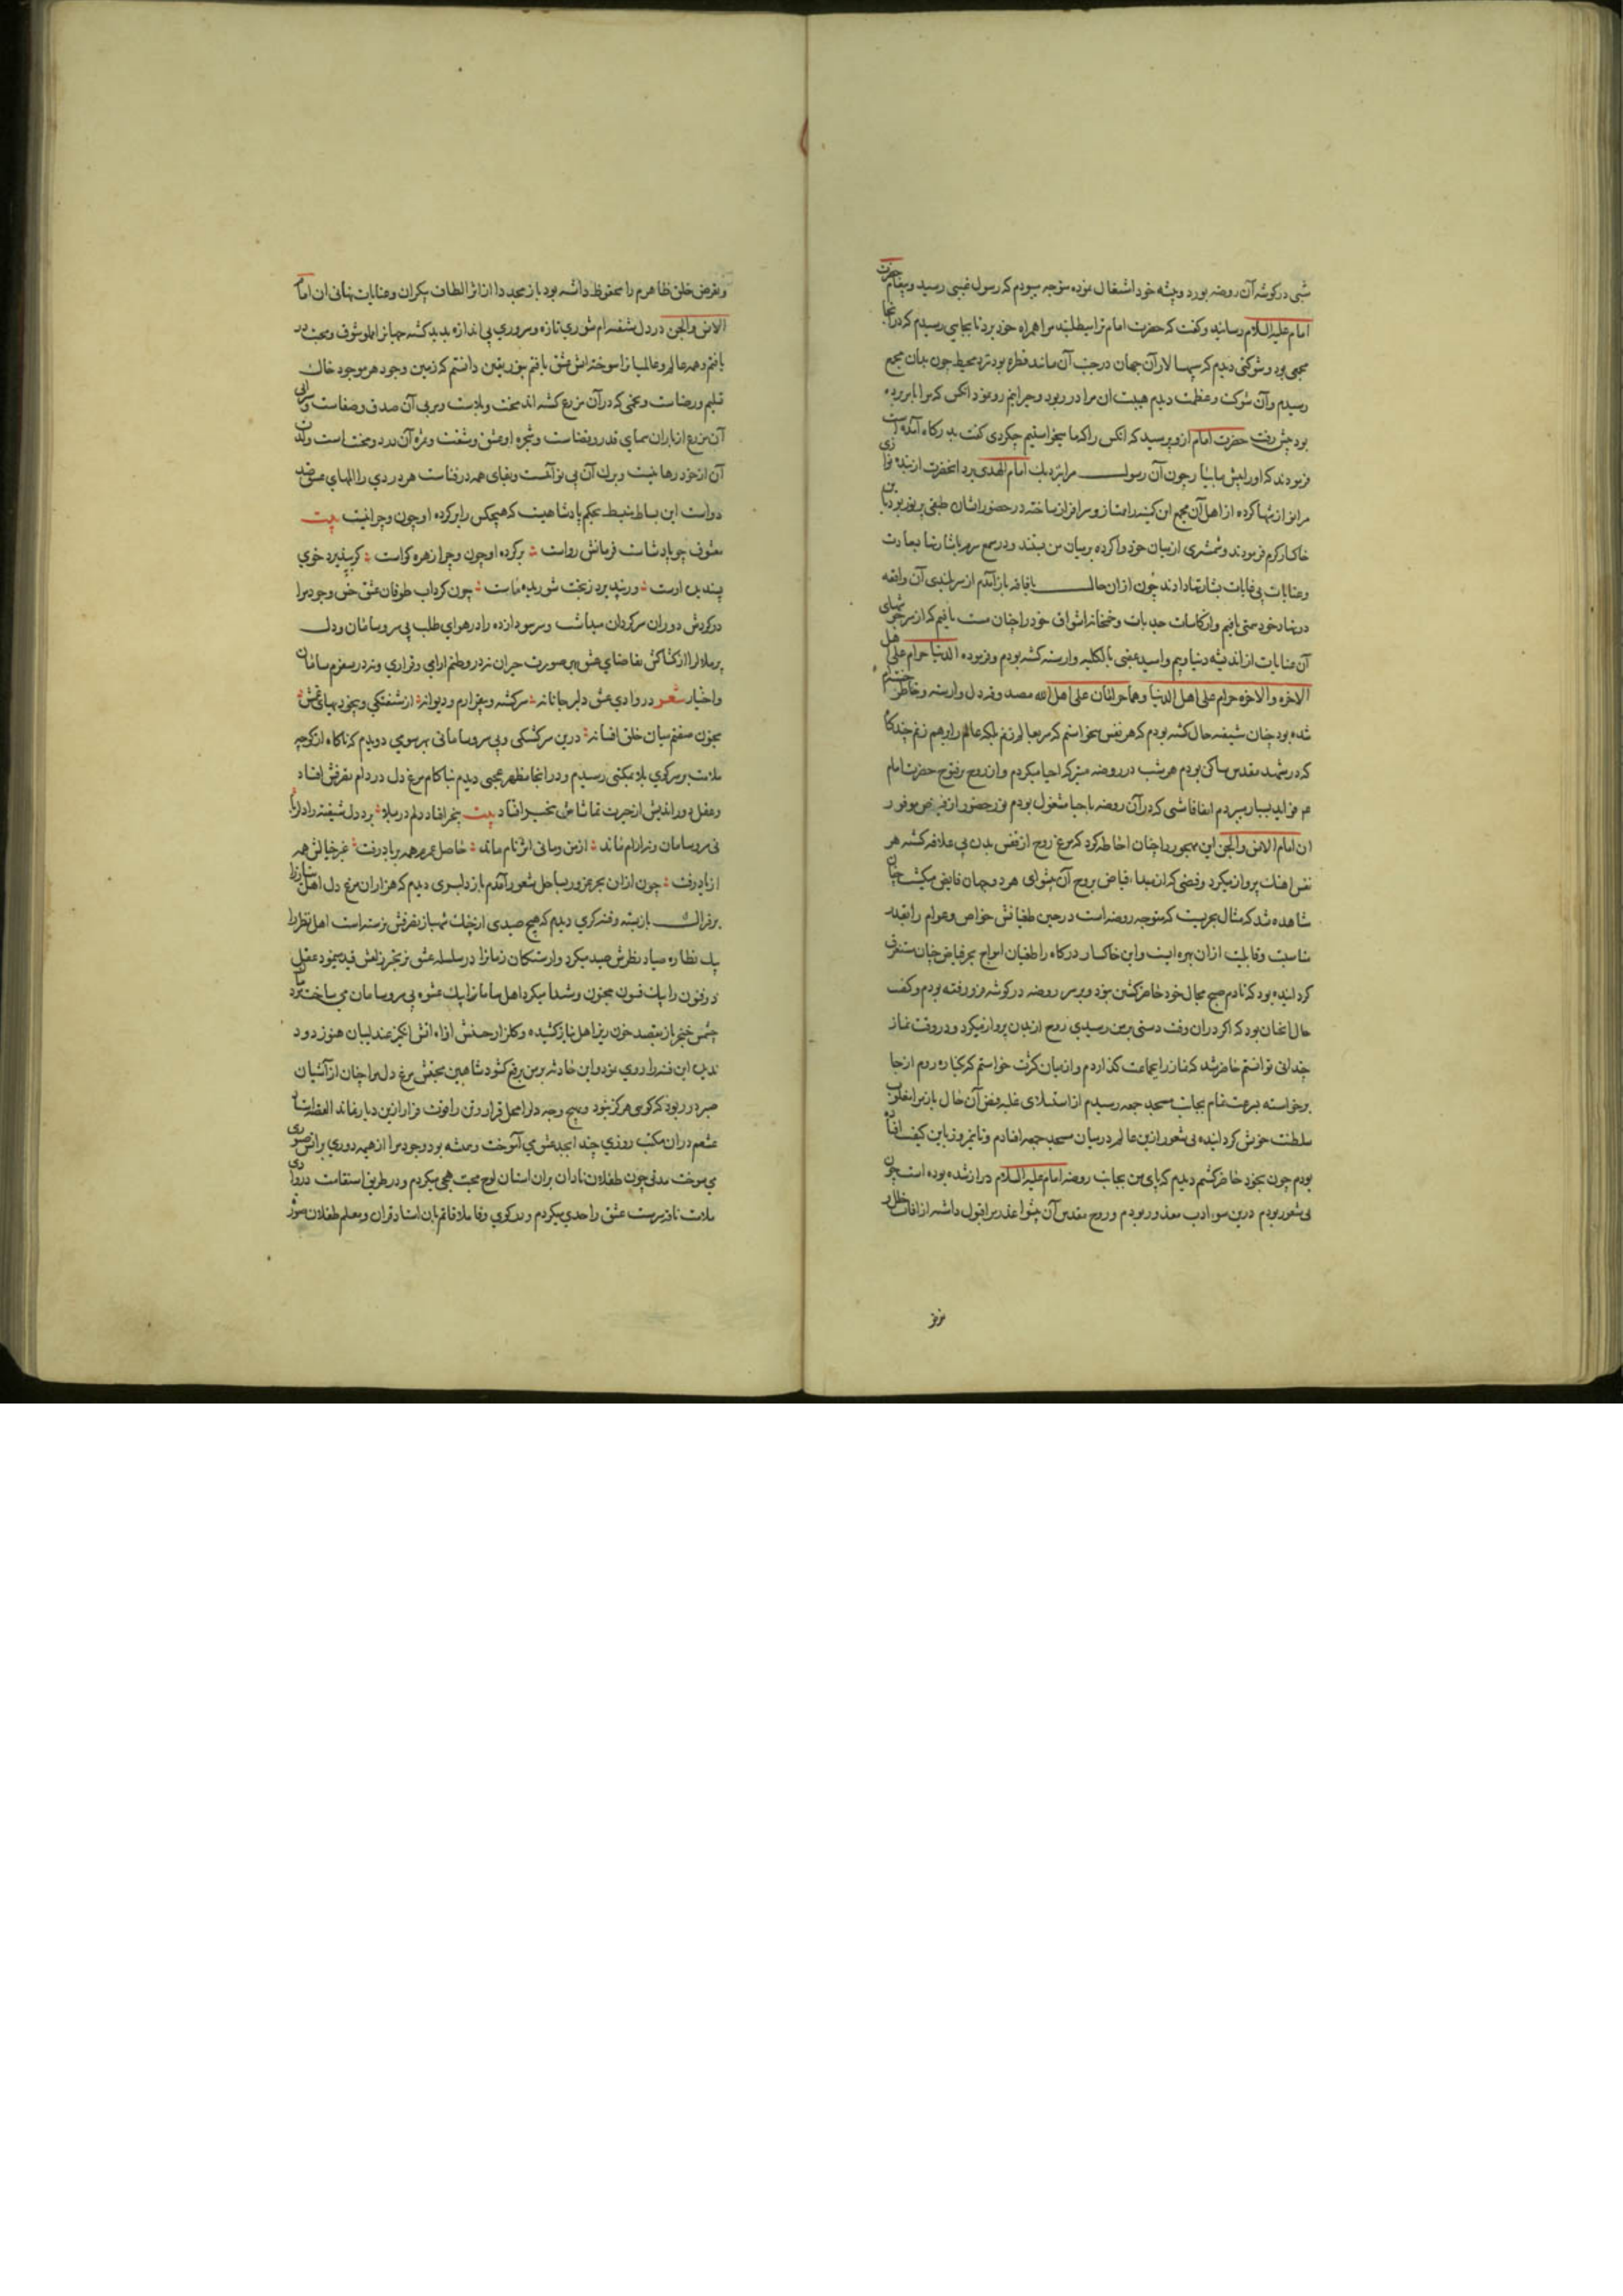 شبی در کوشه آن روضه بورد وپیشه خود اشتغال نموده متوجه میبودم که رسول غیبی رسید وپیغام حضرت
امام علیه السلام رسانید وکفت که حضرت امام ترا میطلبند مرا همراه خود برد تا بجایی رسیدم که در آنجا
مجمعی بود وشوکتی دیدم که سپهسالار آن جهان در جنب آن مانند قطره بود نزد محیط چون بدان مجمع
رسیدم وآن شوکت وعظمت دیدم هیبت ان مرا در ربود وحیرانیم رو نمود انکس که مرا بابر برده
بود پیش رفت حضرت امام ازو پرسید که انکس را که ما میخواستیم چکردی کفت بدرکاه آمده است
فرمودند که اورا پیش ما بیار چون آن رسول مرا نزدیک امام الهدی برد انحضرت از بنده نوازی
مرا نواز شها کرده از اهل آن مجمع این کمینه را ممتاز وسرافراز ساختند در حضور ایشان طبقی پر نور بود با من
خاکسار کرم فرمودند وشمشری از میان خود وا کرده بر میان من بستند ودر سمع سرم بابشارتها بسعادت
وعنایات بی غایات بشارتها دادند چون ازان حال بافاقه باز آمدم از سربلندی آن واقعه
در نهاد خود مستی یافتم واز کاسات جذبات وخمخانه اشواق خود را چنان مست یافتم که از سرخوشیهای
آن عنایات از اندیشه دنیا وبیم وامید عقبی بالکلیه وارسته کشته بودم وفرموده الدنیا حرام علی اهل
الاخره والاخره حرام علی اهل الدنیا وهما حرامان علی اهل الله مصدوقه دل وارسته وخاطر خسته ام
شده بود چنان شیفته حال کشته بودم که هر نفس میخواستم که سر بعالم زنم بلکه عالم را برهم زنم چندکاه
که در مشهد مقدس ساکن بودم هر شب در روضه متبرکه احیا میکردم واز روح پرفتوح حضرت امام
فواید بسیار میبردم اتفاقا شبی که در آن روضه باحیا مشغول بودم نور حضور از فیض موفور
ان امام الانس والجن این مهجور را چنان احاطه کرد که مرغ روح از قفس بدن بی علاقه کشته هر
نفس اهنک پرواز میکرد وفیضی که از مبداء فیاض بروح آن پیشوای هر دو جهان فایض میکشت چنان
مشاهده شد که مثال بحریست که متوجه روضه است در حین طغیانش خواص وعوام را بقدر
مناسبت وقابلیت ازان بهره ایست واین خاکسار درکاه را طغیان امواج بحر فیاض چنان مستغرق
کردانیده بود که تا دم صبح مجال خود حاضر کشتن نبود وبر سر روضه در کوشه فرو رفته بودم وکیف
حال انچنان بود که اکر دران وقت دستی بمن رسیدی روح از بدن پرواز میکرد ودر وقت نماز
چندانی توانستم حاضر شد که نماز را بجماعت کذاردم واز میان کثرت خواستم که بکناره روم از جا
برخواسته بسرعت تمام بجانب مسجد جمعه رسیدم از استیلای غلبه فیض آن حال باز مرا مغلوب
سلطنت خویش کردانیده بی شعور ازین عالم در میان مسجد جمعه افتادم وتا نیمروز باین کیف افتاده
بودم چون بخود حاضر کشتم دیدم که پای من بجانب روضه امام علیه السلام دراز شده بوده است چون
بی شعور بودم درین سوء ادب معذور بودم وروح مقدس آن پیشوا عذر مرا قبول داشته از افات خلل در
وتعرض خلق ظاهرم را محفوظ داشته بود باز مجددا از اثر الطاف بیکران وعنایات نهانی ان امام
الانس والجن در دل شیفته ام شوری تازه وسروری بی اندازه پدید کشته جهانرا مملو شوق ومحبت در
یافتم وهمه عالم وعالمیانرا سوخته آتش عشق یافتم بنور یقین دانستم که زمین وجود هر موجود خاک
تسلیم ورضاست وتخمی که در آن مزرع کشته اند محنت وبلاست ومربی آن صدق وصفاست وسرابی
آن مزرع از باران سمای قدر وقضاست وشجره او عشق وشفقت وثمره آن درد ومحنت است ولذت
آن از خود رهانیست وبرک آن بی نوائیست وبقای همه در فناست هر دردی را المهای عشق ضد
دواست این بساط بسیط بحکم پادشاهیست که هیچکس را بر کرده او چون وچرا نیست بیت
معشوق چو پادشاست فرمانش رواست بر کرده او چون وچرا زهره کراست کر بپذیرد خوی
پسندیده اوست ور نپذیرد ز بخت شوریده ماست چون کرداب طوفان عشق خس وجود مرا
در کردش دوران سرکردان میداشت وسر سودا زده را در هوای طلب بی سروسامان ودل
پر ملال را از کشاکش تقاضای عشق این صورت حیران نه در وطنم آرامی وقراری ونه در سفرم سامان
واختیار شعر در وادی عشق دلبر جانانه سرکشته وبیقرارم ودیوانه از شیفتکی وبیخودیهای غمش
مجنون صفتم میان خلق افسانه درین سرکشتکی وبی سروسامانی بهر سوی دویدم که ناکاه از کوچه
ملامت بر سر کوی بلا بمکتبی رسیدم ودر انجا مظهر عجبی دیدم بناکام مرغ دل در دام تفرقش افتاد
وعقل دوراندیش از حیرت تماشایش بتحیر افتاد بیت بتحیر افتاد دلم در بلا برد دل شیفته را دلربا
نی سروسامان ونه آرام ماند از من ومائی اثر نام ماند حاصل عمرم همه بر باد رفت غیر خیالش همه
از یاد رفت چون ازان بحر پرزور بساحل شعور آمدم باز دلبری دیدم که هزاران مرغ دل اهل نیاز را
بر فتراک ناز بسته وفتنه کری دیدم که هیچ صیدی از چنک شهباز تفرقش نرسته است اهل نظر را
بیک نظاره صیاد نظرش صید میکرد وارستکان زمانرا در سلسله عشق بزنجیر زلفش قید مینمود عقل
ذوفنون را بیک فسون مجنون وشیدا میکرد اهل سامانرا بیک عشوه بی سروسامان می ساخت
چشم خنجر باز بقصد خون ریز اهل نیاز کشیده وکلزار حسنش آوازه آتش انکیز عندلیبان هنوز دود
ندیده این فتنه را روی نمود واین حادثه بر من پرغم کشود شاهین بجنبش مرغ دل مرا چنان از آشیان
صبر در ربود که کوئی هرکز نبود وبهیچ وجه دل را محل قرار وتن را قوت فرار ازین دیار نماند القصه استاد
عشقم دران مکتب روزی چند ابجد عشق می آموخت وعشق بود وجود مرا از همیه دوری براتش صبوری
می سوخت مدتی چون طفلان نادان بران استان لوح محبت هجی میکردم ودر طریق استقامت در وادی
ملامت ناقه سرمست عشق را حدی میکردم ودر کوی وفا ملاقاتم بان استاد قران ومعلم طفلان سوز